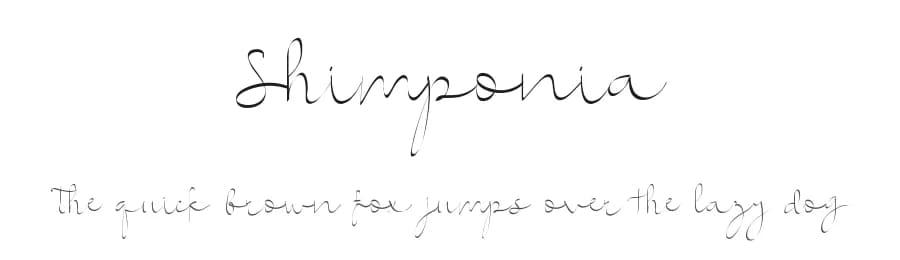 Shimponia
The quick brown fox jumps over the lazy dog